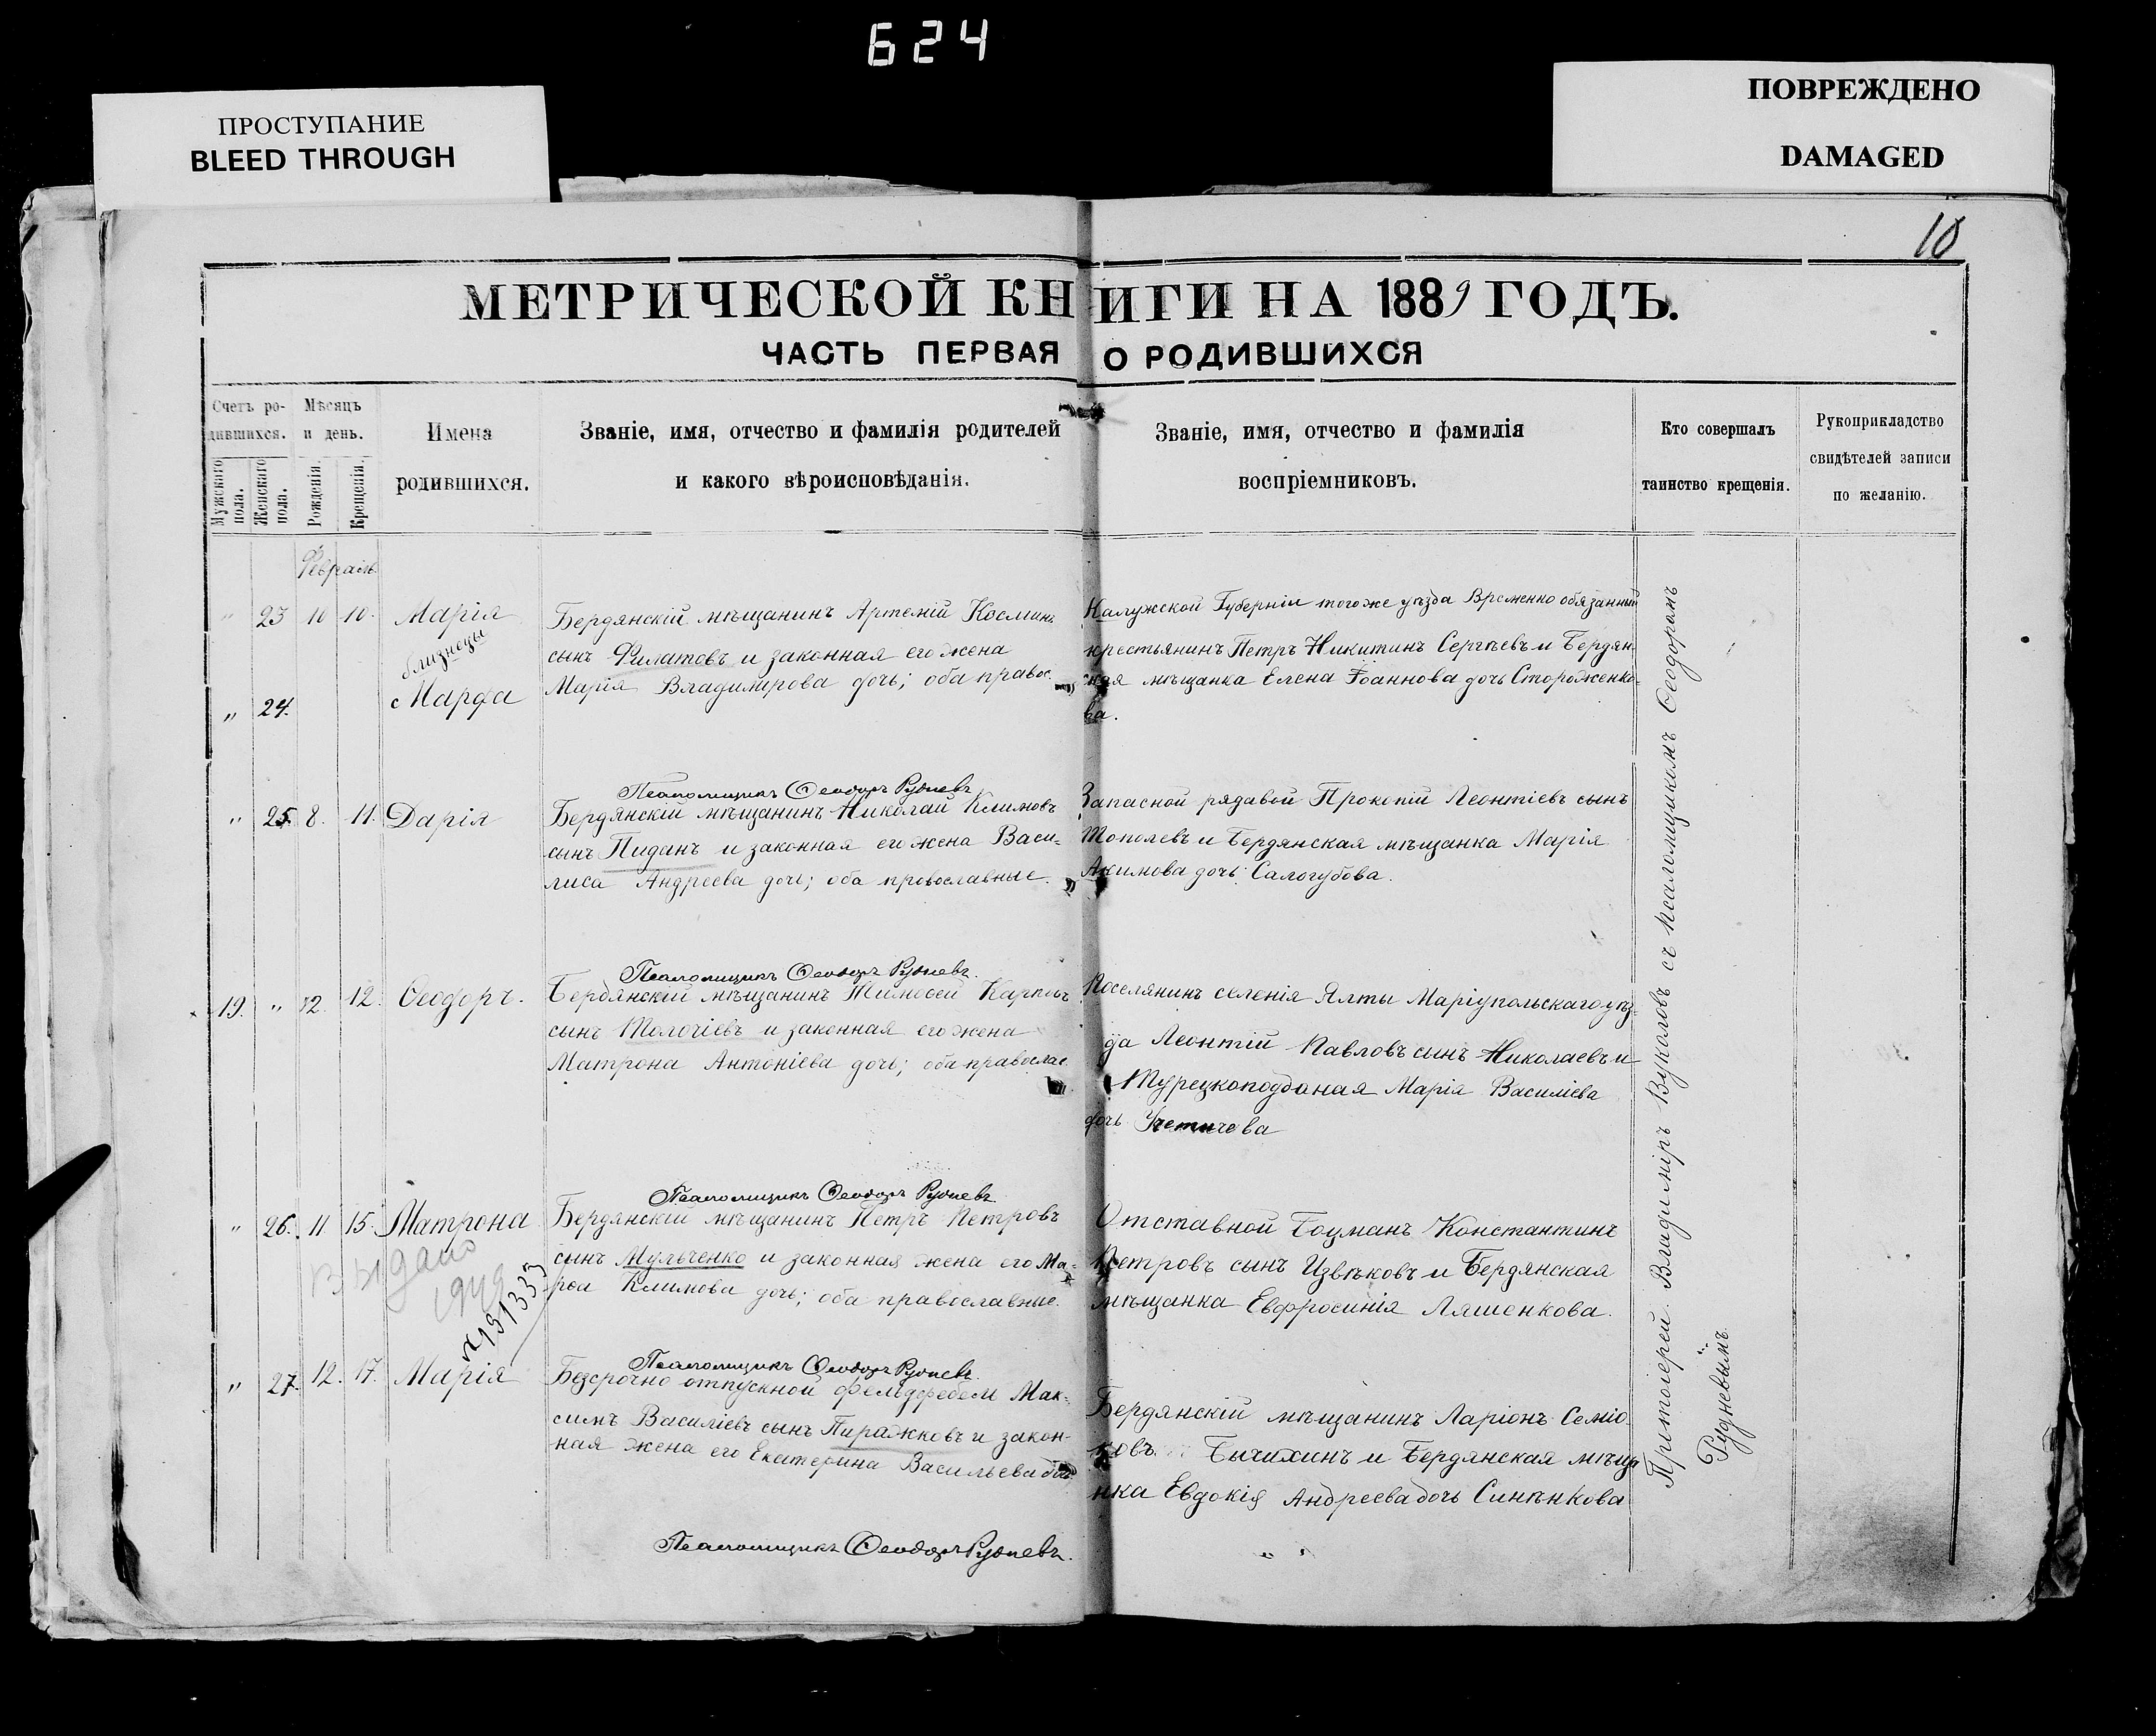 624
ПРОСТУПАНИЕ
BLEED THROUGH
ПОВРЕЖДЕНО
DAMAGED
10
МЕТРИЧЕСКОЙ КНИГИ НА 1889 ГОДЪ.
ЧАСТЬ ПЕРВАЯ О РОДИВШИХСЯ
Счетъ ро-
дившихся.
Мужскаго пола.
Женскаго пола.
Мѣсяцъ
и день.
Рожденія.
Крещенія.
Имена
родившихся.
Званіе, имя, отчество и фамилія родителей
и какого вѣроисповѣданія.
Званіе, имя, отчество и фамилія
воспріемниковъ.
Кто совершалъ
таинство крещенія.
Рукоприкладство
свидѣтелей записи
по желанію.
Февраль
" 23 10 10. Марія
близнецы
" 24. Марфа
Бердянскій мѣщанинъ Артемій Косминъ
сынъ Филатовъ и законная его жена
Марія Владимірова дочь; оба правос.
Калужской Губерніи тогоже уѣзда Временно обязанный
крестьянинъ Петръ Никитинъ Сергѣевъ и Бердян-
ская мѣщанка Елена Іоаннова дочь Стороженко-
ва.
Псаломщикъ Ѳеодоръ Рудневъ
" 25. 8. 11. Дарія
Бердянскій мѣщанинъ Николай Климовъ
сынъ Пиданъ и законная его жена Васи-
лиса Андреева дочь; оба православные.
Запасной рядавой Прокопій Леонтіевъ сынъ
Тополевъ и Бердянская мѣщанка Марія
Акимова дочь Салогубова.
Псаломщикъ Ѳеодоръ Рудневъ.
19. " 12. 12. Ѳеодоръ.
Бердянскій мѣщанинъ Тимофей Карповъ
сынъ Толочіевъ и законная его жена
Матрона Антоніева дочь; оба православ.
Поселянинъ селенія Ялты Маріупольскаго уѣз-
да Леонтій Павловъ сынъ Николаевъ и
Турецкоподданая Марія Василіева
дочь
Псаломщикъ Ѳеодоръ Рудневъ
" 26. 11. 15. Матрона
Выдано
1949
№191333
Бердянскій мѣщанинъ Петръ Петровъ
сынъ Мульченко и законная жена его Ма-
рфа Климова дочь; оба православные.
Отставной Боцманъ Константинъ
Петровъ сынъ Извѣковъ и Бердянская
мѣщанка Евфросинія Ляшенкова.
Псаломщикъ Ѳеодоръ Рудневъ.
" 27. 12. 17. Марія
Безсрочно отпускной фельдфебель Мак-
симъ Василіевъ сынъ Пиражковъ и закон-
ная жена его Екатерина Васильева
Бердянскій мѣщанинъ Ларіонъ Семіо-
новъ Бычихинъ и Бердянская мѣща
нка Евдокія Андреева дочь Синѣнкова
Псаломщикъ Ѳеодоръ Рудневъ.
Протоіерей Владиміръ Вуколовъ съ псаломщикомъ Ѳеодоромъ
Рудневымъ.